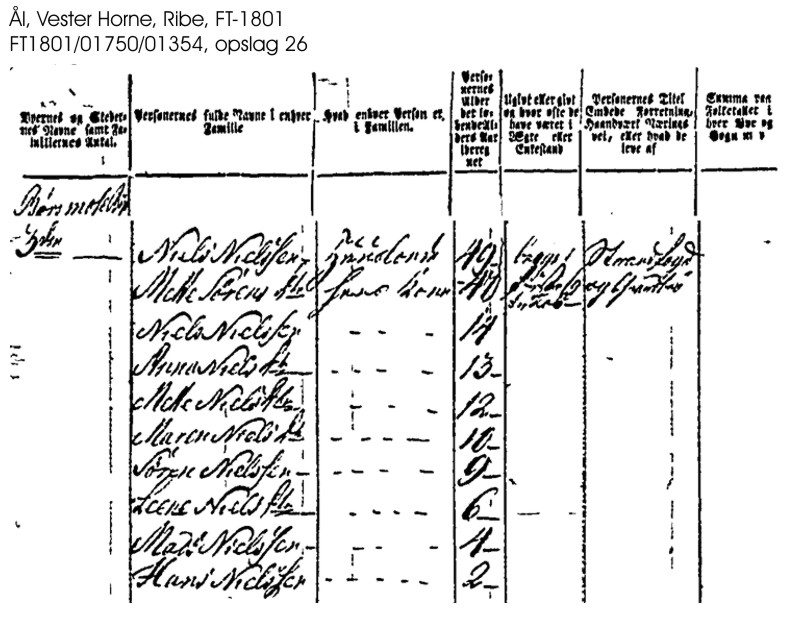 Ål, Vester Horne, Ribe, FT-1801
FT1801/01750/01354, opslag 26
Byernes og Steder-
nes Navne samt Fa-
miliernes Antal.
Personernes fulde Navne i enhver
Familie
Hvad enhver Person er,
i Familien.
Perso-
nernes
Alder
det lø-
bende Al-
ders Aar
ibereg
net
Ugivt eller givt
og hvor ofte de
have været i
Ægte eller
Enkestand
Personernes Titel
Embede Forretning,
Haandværk Nærings
vei, eller hvad de
leve af
Summa paa
Folketallet i
hver Bye og
Sogn
Niels Nielsen 49
Mette Sörens dtr 40
Niels Nielsen - - - 14
Anna Niels dtr - - - 13
Mette Niels dtr - - - 12
Maren Niels dtr - - - 10
Sören Nielsen - - - 9
Leene Niels dtr - - - 6
Mads Nielsen - - - 4
Hans Nielsen - - - 2